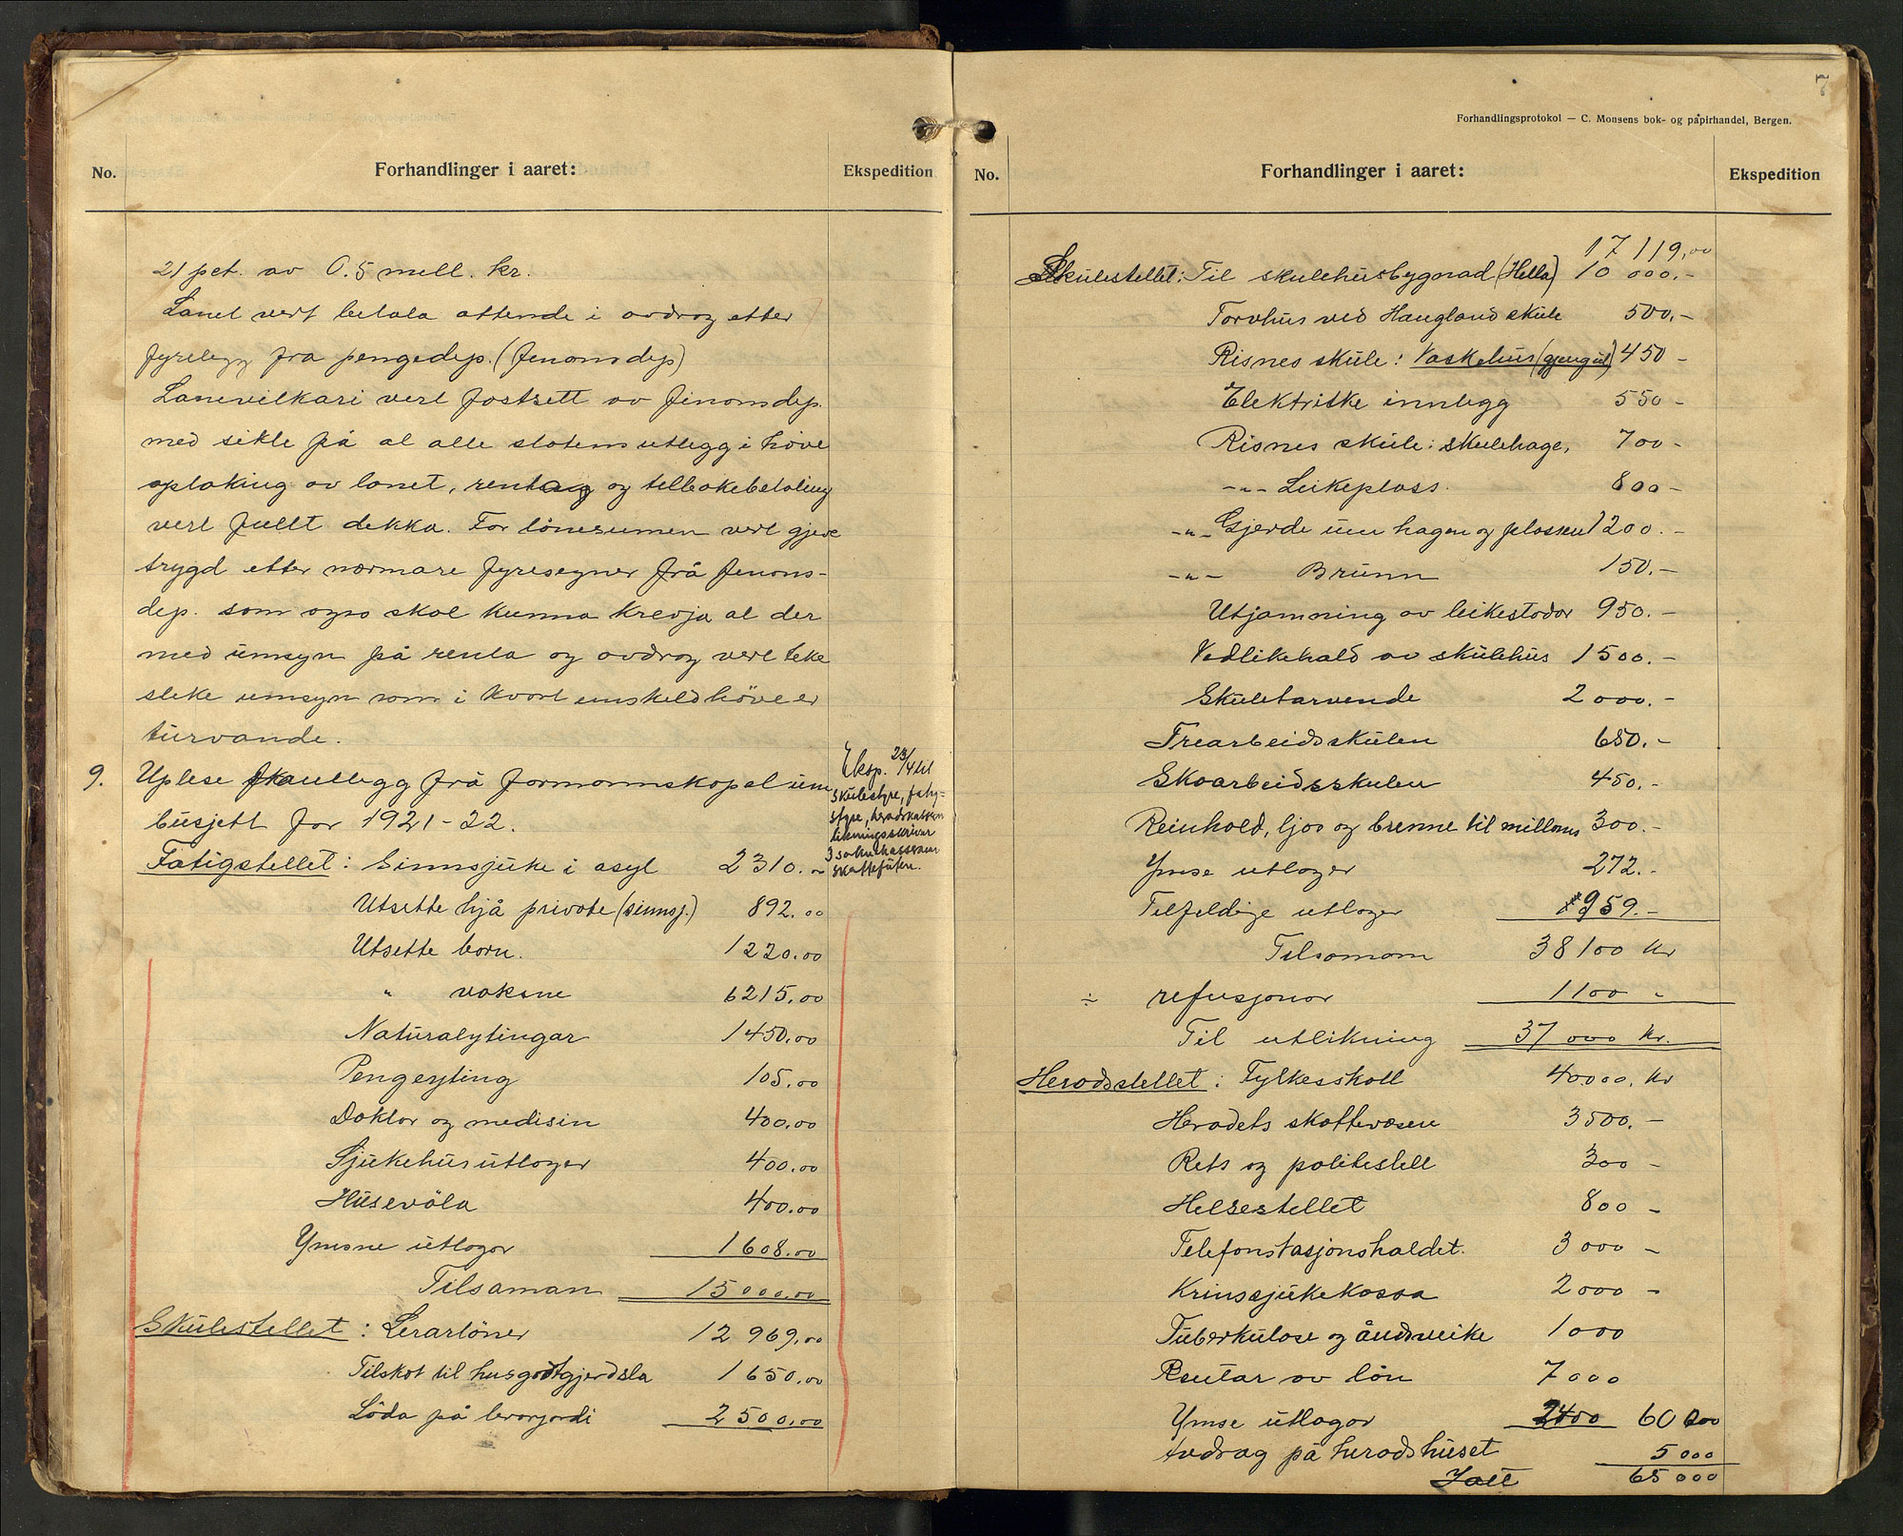 No.
Forhandlinger i aaret:
Ekspedition
21 pct. av 0.5 mill. kr.
Lånet vert betala attende i avdrag etter
fyrelegg fra pengedep. (finansdep)
Lånevilkåri vert fastsett av finansdep.
med sikte på at alle statens utlegg i høve
optaking av lånet, rentor og tilbakebetaling
vert fullt dekka. For lånesumen vert gjeve
trygd etter nærmare fyresegner frå finans-
dep. som ogso skal kunna krevja at der
med umsyn på renta og avdrag vert teke
slike umsyn som i kvart einskild høve er
turvande.
9. Uplese framlegg frå formannskapet um
busjett for 1921-22.
Eksp. 23/4 til
skulestyre, fatig-
styre, heradskassen
likningsskrivar
sokukassen
skattefuten.
Fatigstellet: Sinnsjuke i asyl 2310.-
Utsette hjå private (sinnsj.) 892.00
Utsette born. 1220.00
" voksne 6215.00
Naturalytingar 1450.00
Pengeyting 105.00
Doktor og medisin 400.00
Sjukehusutlogor 400.00
Husevøla 400.00
Ymsne utlogor 1608.00
Tilsaman 15000.00
Skulestellet: Lerarlöner 12969,00
Tilskot til husgodtgjerdsla 1650.00
Löda på lerarjordi 2500.00
7
Forhandlingsprotokol — C. Monsens bok- og papirhandel, Bergen.
No.
Forhandlinger i aaret:
Ekspedition
17119,00
Skulestellet: Til skulehusbygnad (Hella) 10 000.-
Torvhus ved Haugland skule 500.-
Risnes skule: Vaskehus (gjeng ut) 450 -
Elektriske innlegg 550 -
Risnes skule: skulehage, 700 -
-"- Leikeplass. 800 -
-"- Gjerde um hagen og plassen 1200.-
-"- Brunn 150.-
Utjamning av leikestodor 950.-
Vedlikehald av skulehus 1500.-
Skuletarvende 2000.-
Trearbeidsskulen 650.-
Skoarbeidsskulen 450.-
Reinhold, ljos og brenne til millom 300.-
Ymse utlogor 272.-
Tilfeldige utlogor 959.-
Tilsamam 38100 kr
÷ refusjonor 1100 -
Til utlikning 37000 kr.
Heradsstellet: Fylkesskatt 40000. kr
Heradets skattevæsen 3500.-
Rets og politistell 300 -
Helsestellet 800 -
Telefonstasjonshaldet. 3000 -
Krinssjukekassa 2000 -
Tuberkulose og åndsveike 1000
Rentar av lån 7000
Ymse utlogor 2400 60000
Avdrag på heradshuset 5000
Ialt 65000